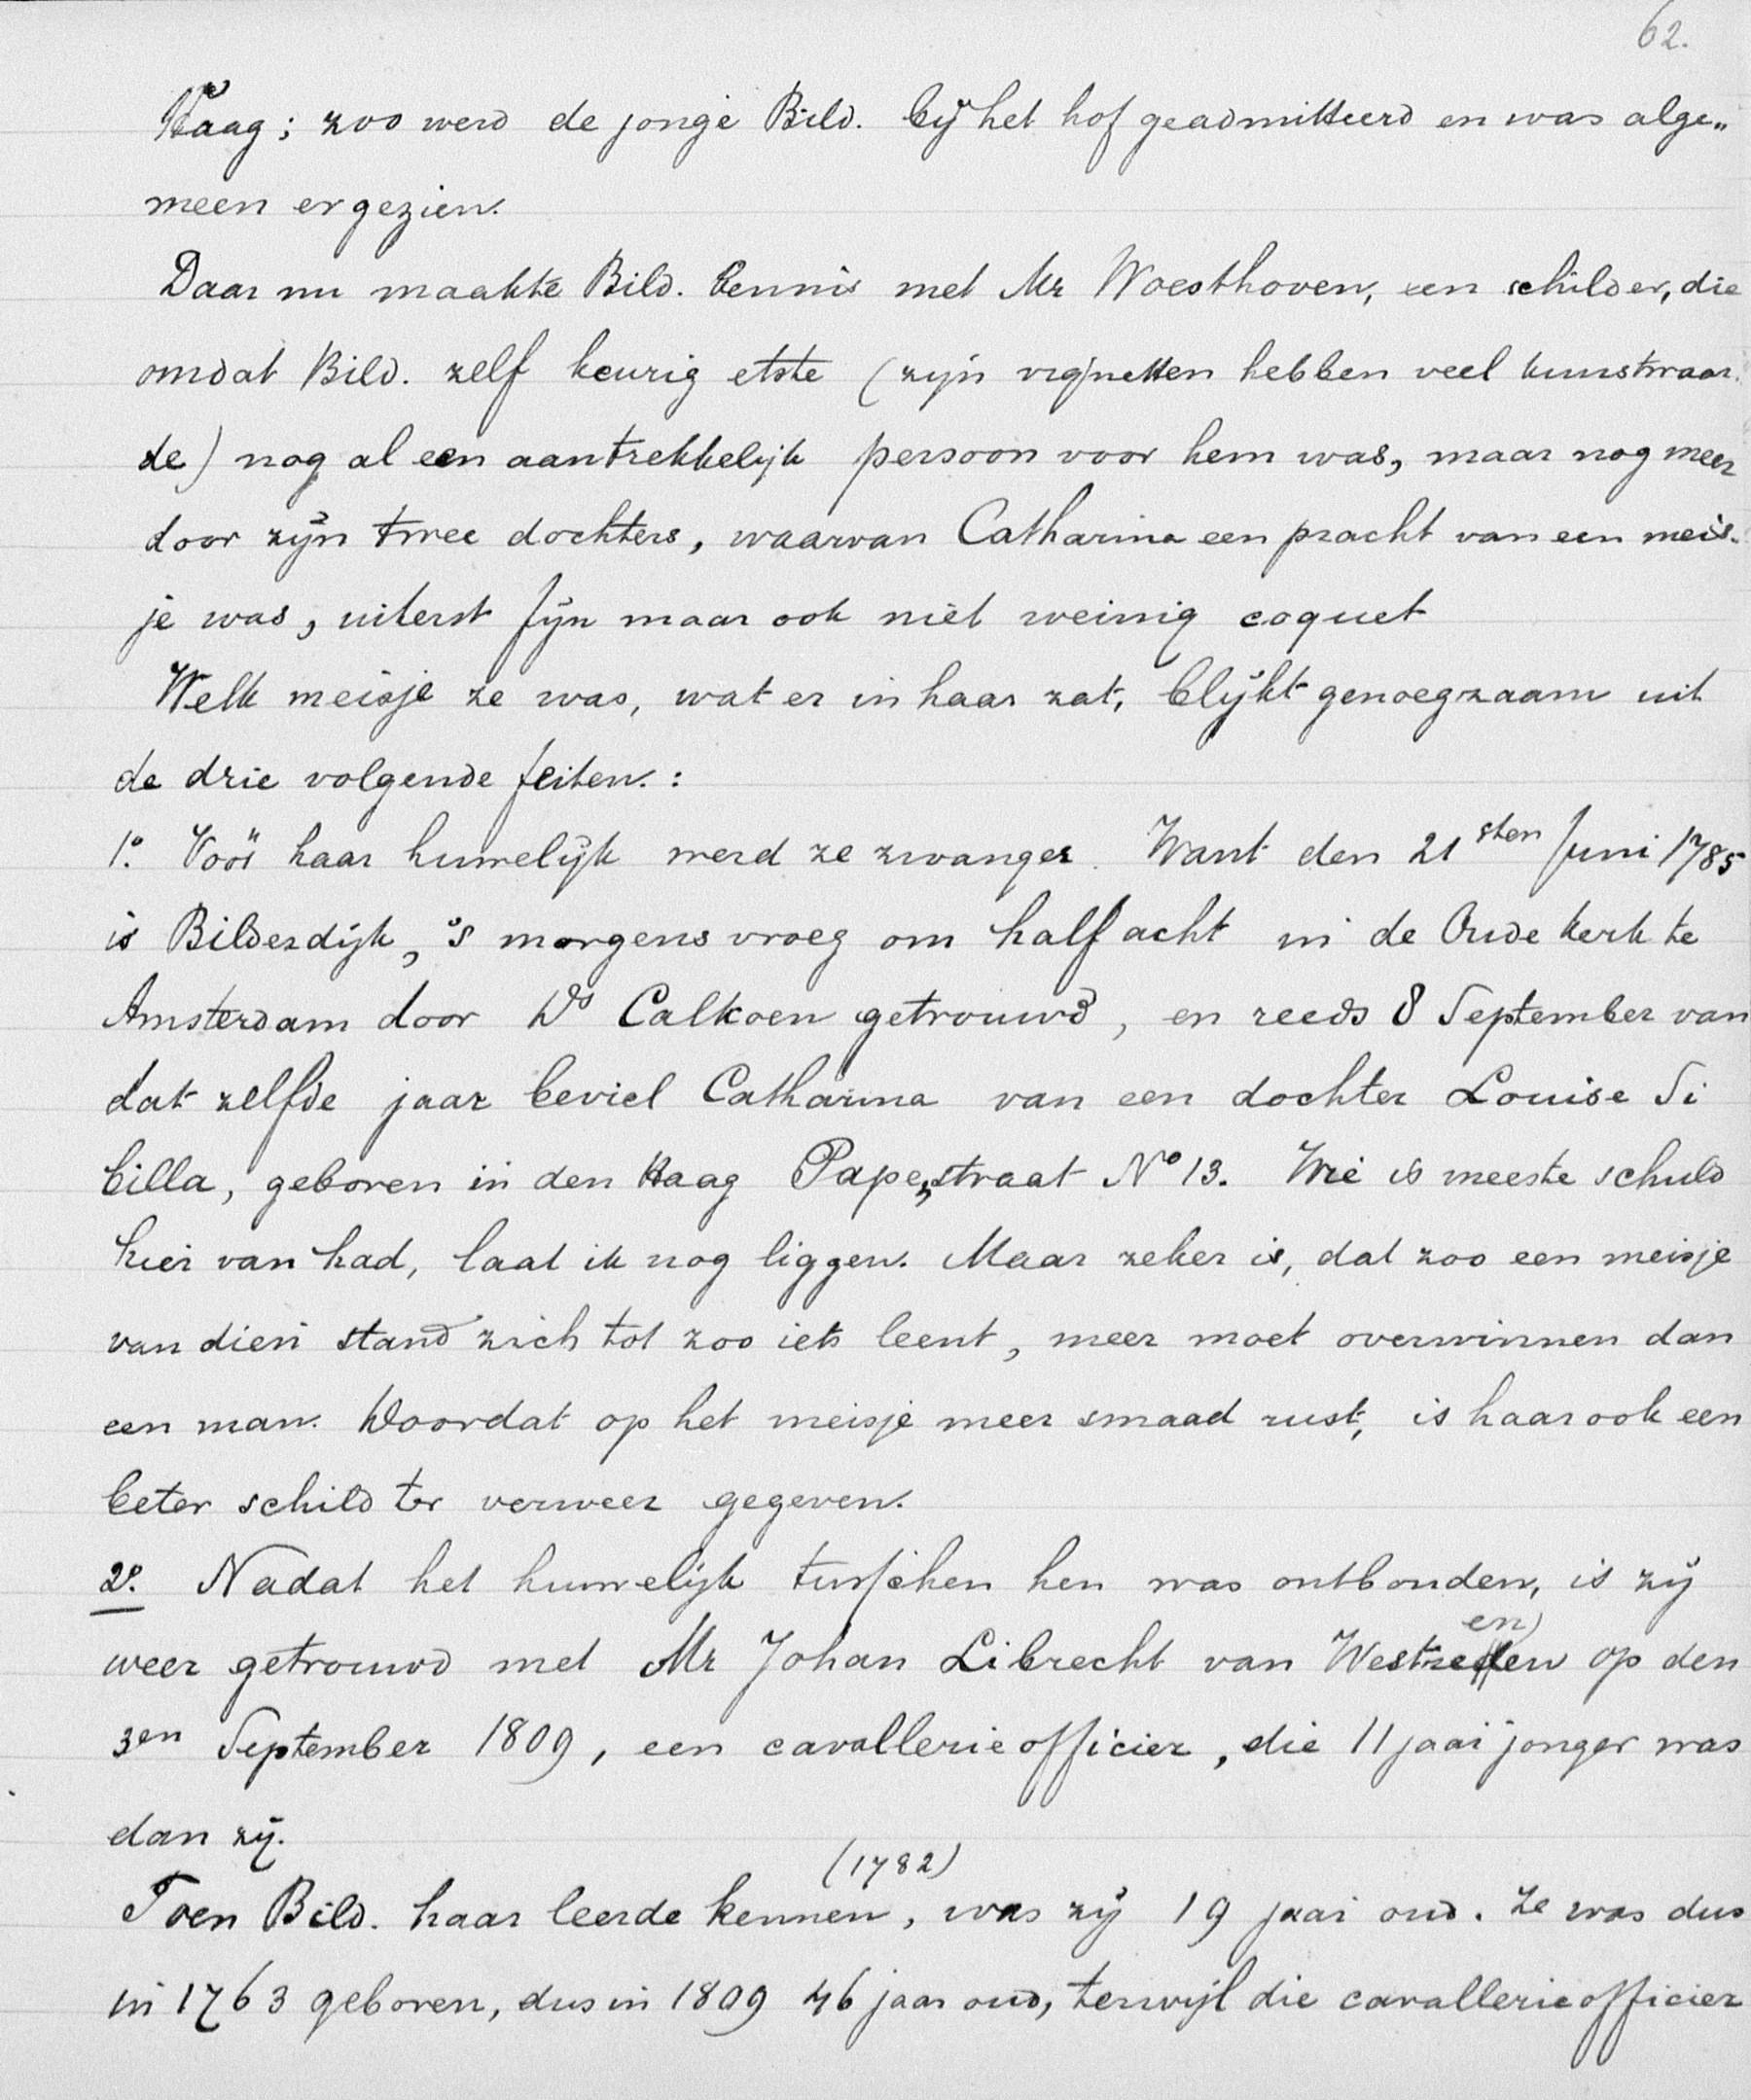 62.
Haag; zoo werd de jonge Bild. bij het hof geadmitteerd en was alge„
meen er gezien.
Daar nu maakte Bild. kennis met Mr Woesthoven, een schilder, die
omdat Bild. zelf keurig etste (zijn vignetten hebben veel kunstwaar.
de) nog al een aantrekkelijk persoon voor hem was, maar nog meer
door zijn twee dochters, waarvan Catharina een pracht van een meis-
je was, uiterst fijn maar ook niet weinig coquet
Welk meisje ze was, wat er in haar zat, blijkt genoegzaam uit
de drie volgende feiten.:
1º. Vóór haar huwelijk werd ze zwanger. Want den 21sten Juni 1785
is Bilderdijk, 's morgens vroeg om half acht in de Oude Kerk te
Amsterdam door Ds Calkoen getrouwd, en reeds 8 September van
dat zelfde jaar beviel Catharina van een dochter Louise Si
billa, geboren in den Haag Papenstraat Nº 13. Wie is meeste schuld
hier van had, laat ik nog liggen. Maar zeker is, dat zoo een meisje
van dien stand zich tot zoo iets leent, meer moet overwinnen dan
een man. Doordat op het meisje meer smaad rust, is haar ook een
beter schild ter verweer gegeven.
2º. Nadat het huwelijk tusschen hen was ontbonden, is zij
en
weer getrouwd met Mr Johan Librecht van Westreden op den
3en September 1809, een cavallerie officier, die 11 jaar jonger was
dan zij.
(1782)
Toen Bild. haar leerde kennen, was zij 19 jaar oud. Ze was dus
in 1763 geboren, dus in 1809 46 jaar oud, terwijl die cavallerie officier